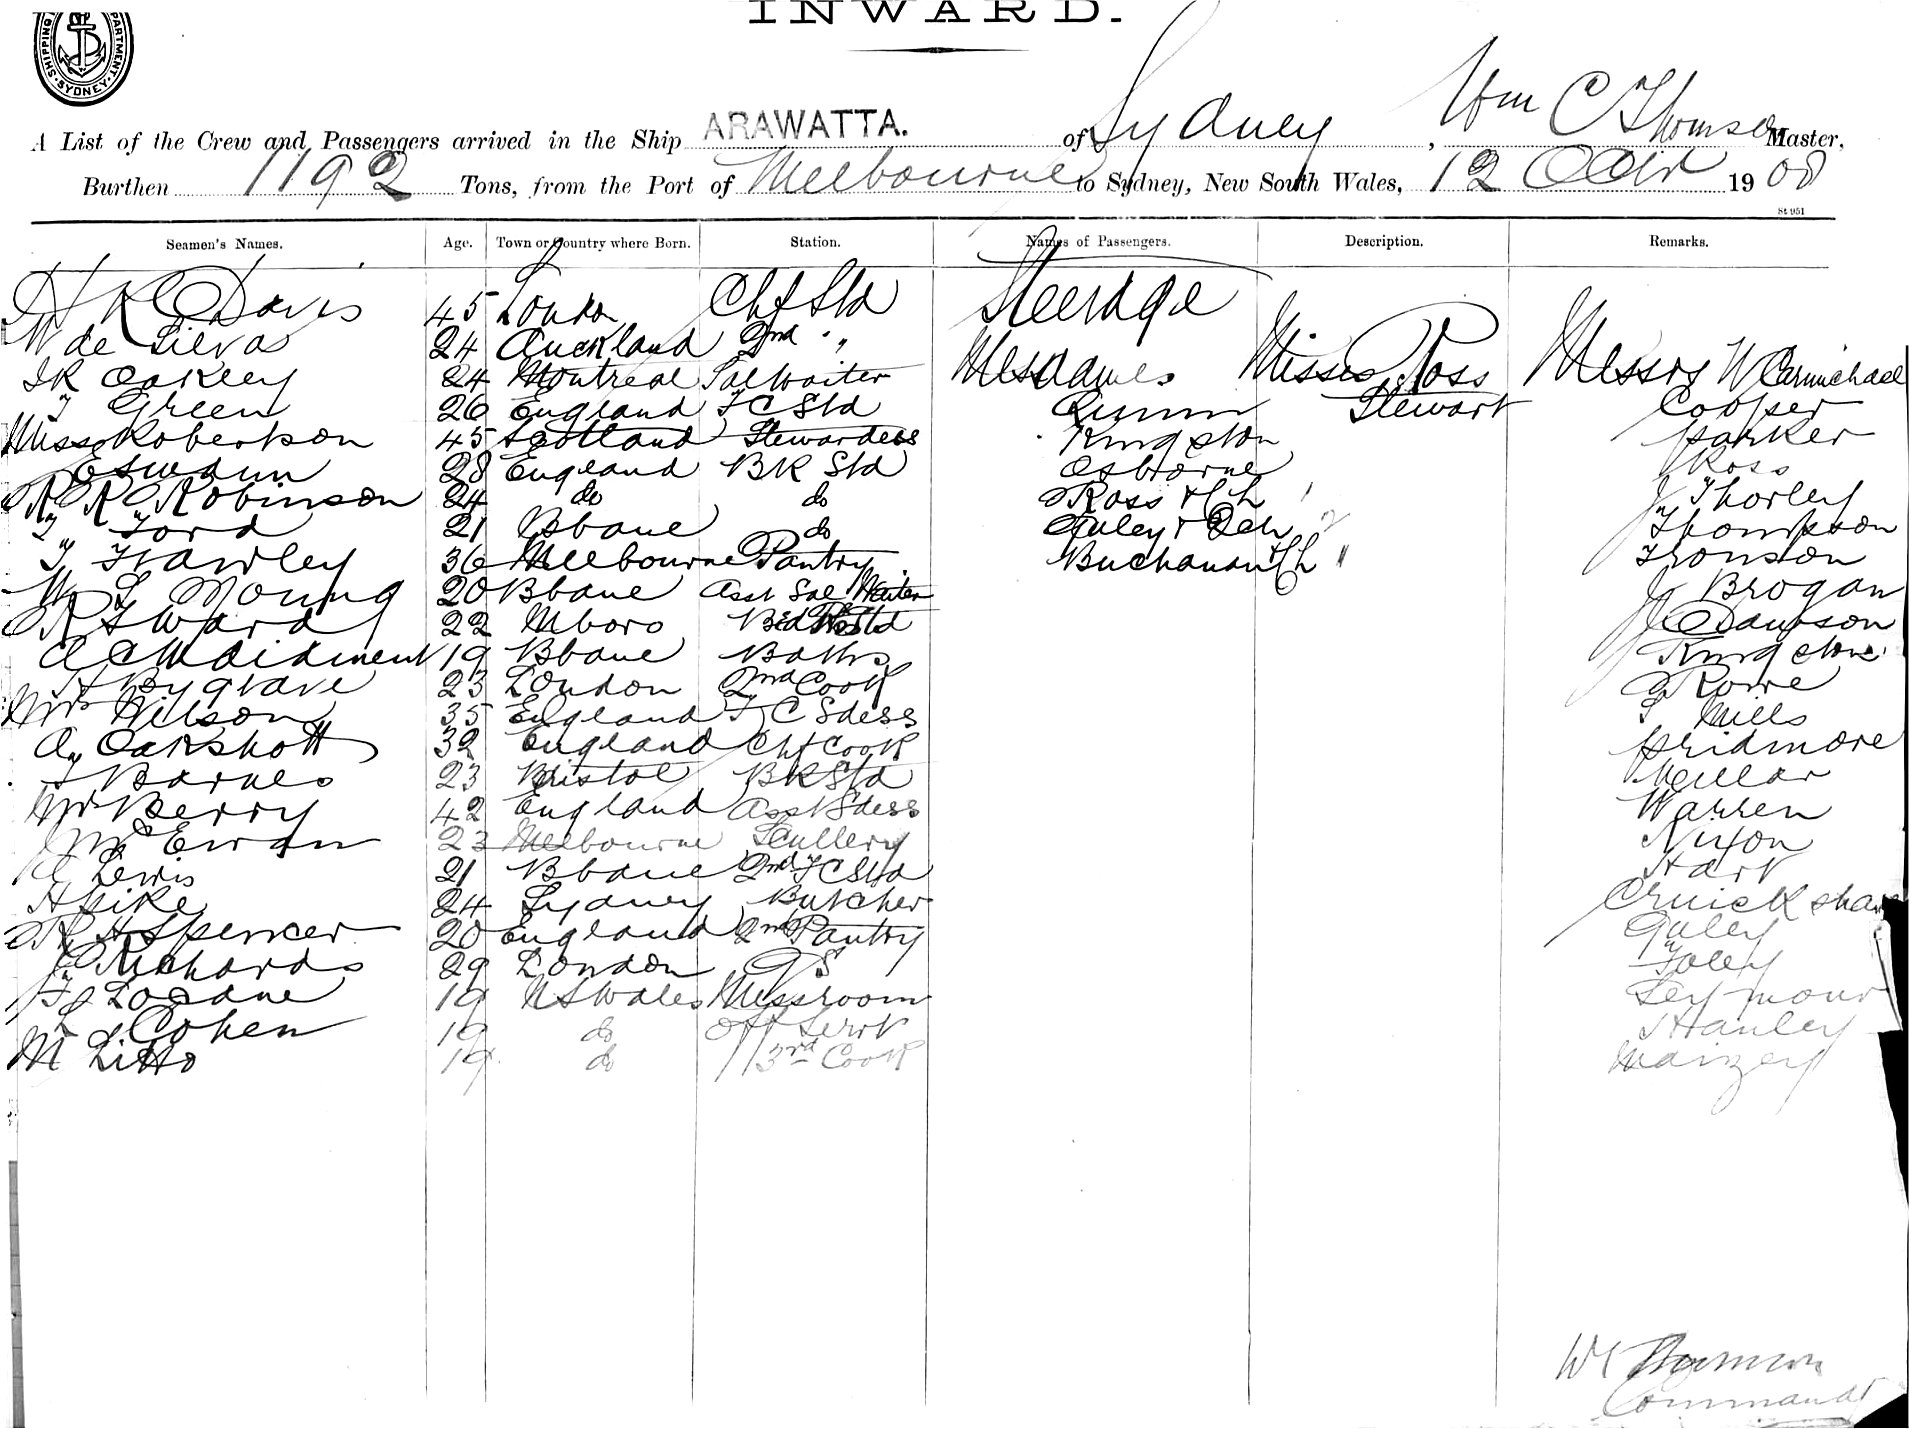 INWARD.
SHIPPING DEPARTMENT · SYDNEY ·
A List of the Crew and Passengers arrived in the Ship ARAWATTA. of Sydney, Wm C Thomson Master,
Burthen 1192 Tons, from the Port of Melbourne to Sydney, New South Wales, 12 Octr 1908
St 951
Seamen's Names. Age. Town or Country where Born. Station. Names of Passengers. Description. Remarks.
Davis 45 London Chf Std Steerage
W de Silva 24 Auckland 2nd "
Oakley 24 Montreal Sal Waiter Mesdames Misses Ross Messrs W Carmichael
T Green 26 England F C Std Quinn Stewart Cooper
Miss Robertson 45 Scotland Stewardess Kingston Parker
E Swann 28 England BR Std Osborne Ross
R R Robinson 24 do do Ross & Ch Jy Thorley
Ty Ford 21 Bbane do Galey & 2 Ch Thompson
T Hawley 36 Melbourne Pantry Buchanan & Ch " Fronson
W L Young 20 Bbane Asst Sal Waiter J Brogan
R G Ward 22 Mboro Std J Dawson
A C Maidment 19 Bbane Baths Kingston
H Bygrave 23 London 2nd Cook Rowe
Mrs Wilson 35 England F C Sdess T Mills
Ay Oakshott 32 England Chf Cook Pridmore
T Barnes 23 Bristol BR Std Millar
Mrs Berry 42 England Asst Sdess Warren
Jno Ewan 23 Melbourne Scullery Nixon
A Lewis 21 Bbane 2nd F C Std Hart
H Pike 24 Sydney Butcher
R H Spencer 20 England 2nd Pantry Galey
Jy Richards 29 London G S Foley
Logane 19 N S Wales Messroom Seymour
L Cohen 19 do Off Servt Hanley
M Litto 19 do 3rd Cook Maizey
W C Thomson
Commander